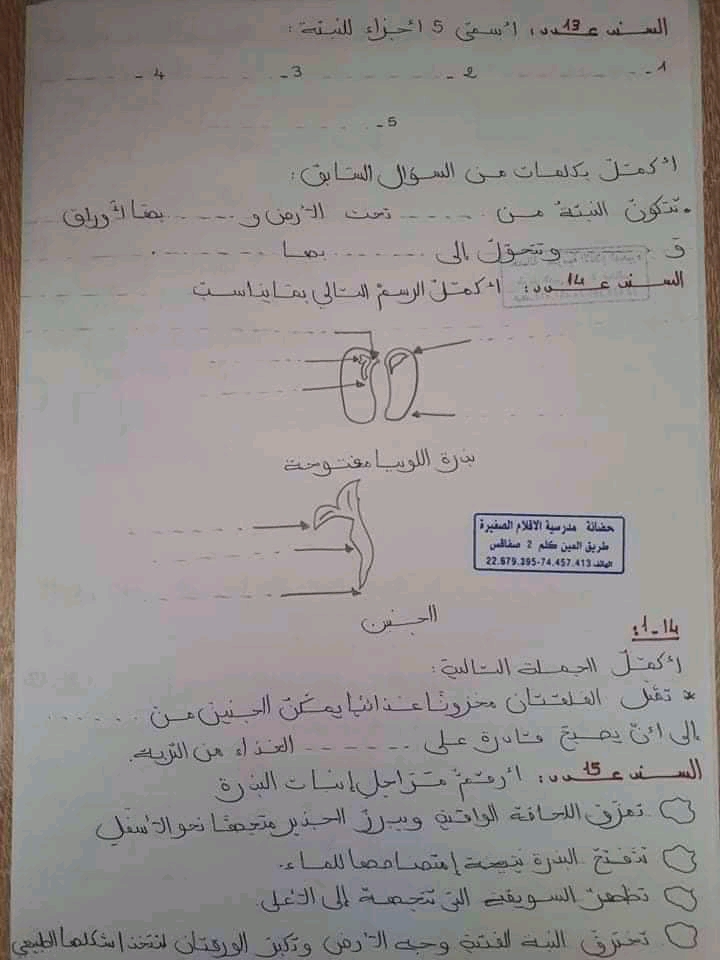 السند عدد 13: أسمّي 5 أجزاء للنبتة:
1- 2- 3- 4-
5-
أكمل بكلمات من السؤال السابق:
تتكوّن النبتة من ...... تحت الأرض و ...... بها أوراق
و ...... وتتحوّل إلى ...... بها ......
السند عدد 14: أكمل الرسم التالي بما يناسب
بذرة اللوبيا مفتوحة
حضانة مدرسية الاقلام الصغيرة
طريق العين كلم 2 صفاقس
الهاتف 74.457.413-22.679.395
الجنين
14-1:
أكمل الجملة التالية:
* تمثّل الفلقتان مخزونا غذائيا يمكّن الجنين من ......
إلى أن يصبح قادرة على ...... الغذاء من التربة.
السند عدد 15: أرقّم مراحل إنبات البذرة
تمزّق اللحافة الواقية ويبرز الجذير متجها نحو الأسفل
تنتفخ البذرة نتيجة إمتصاصها للماء.
تظهر السويقة التي تتجهة إلى الأعلى.
تخترق النبة الفتية وجه الأرض وتكبر الورقتان لتتخذا شكلها الطبيعي